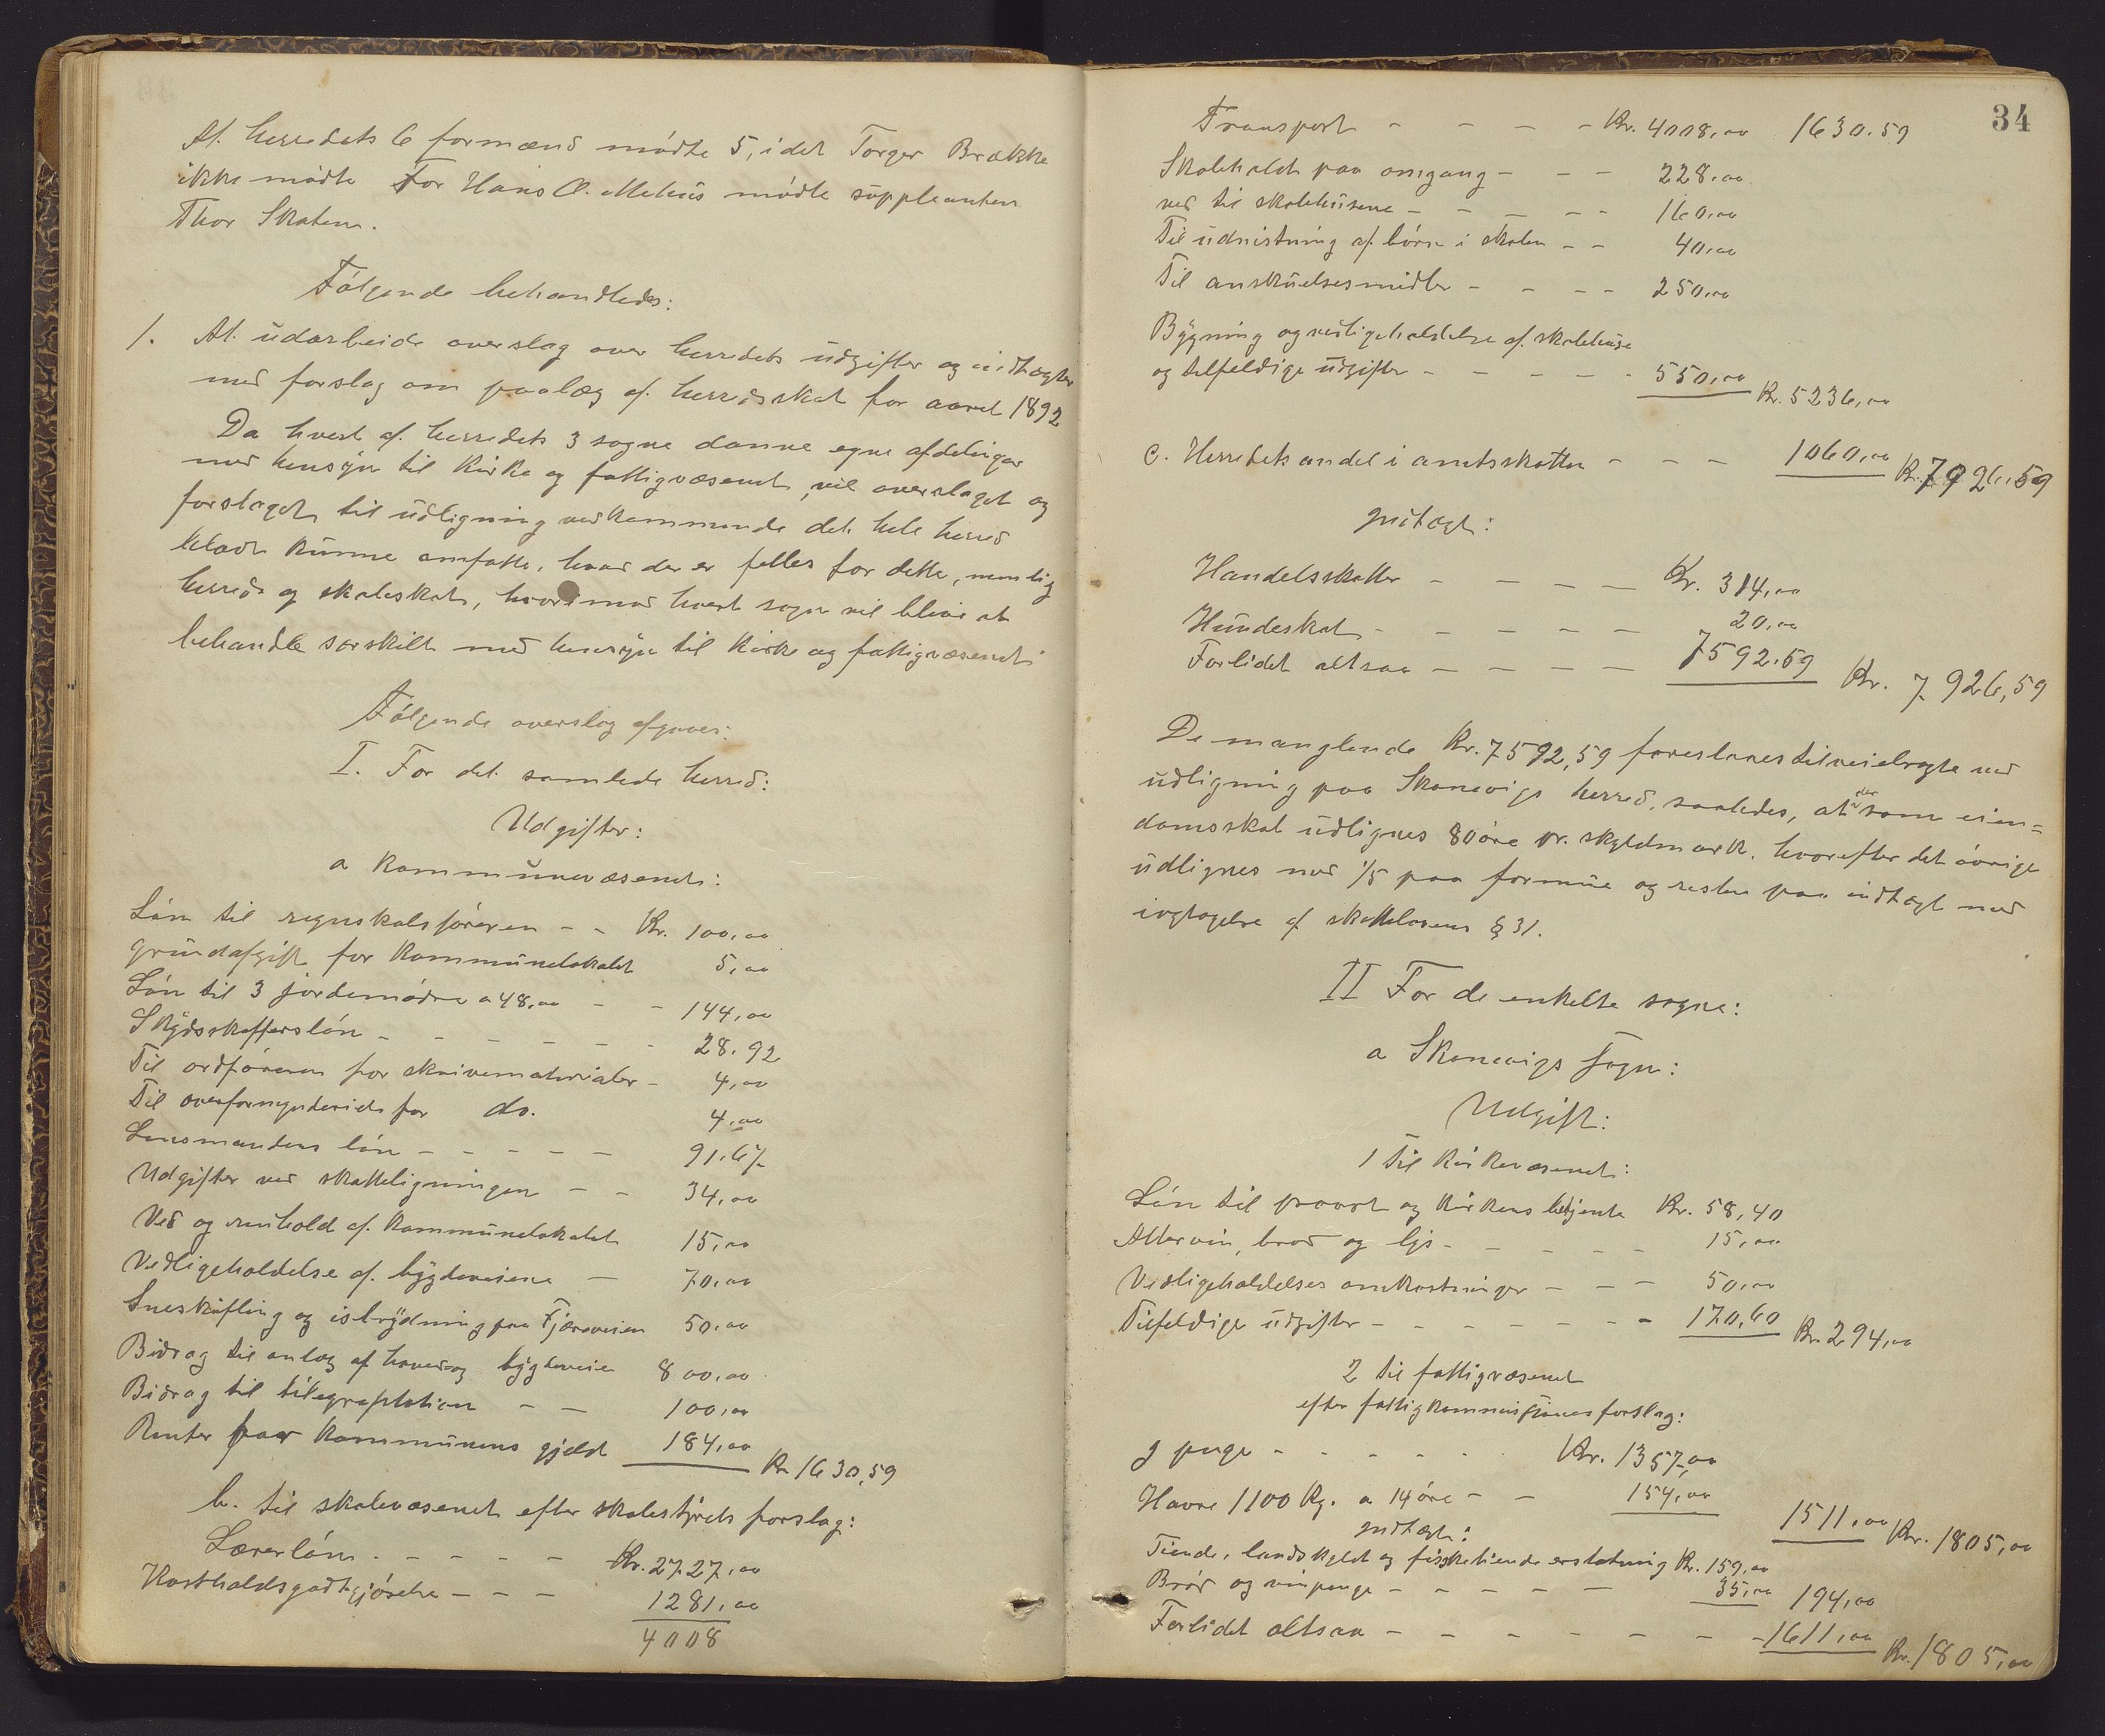 Af herredets 6 formænd mødte 5, idet Torger Brække
ikke mødte For Hans O. Mehus mødte suppleanten
Thor Skaten.
Følgende behandledes:
1. At udarbeide overslag over herredets udgifter og indtægter
med forslag om paalæg af herredsskat for aaret 1892
Da hvert af herredets 3 sogne danne egne afdelinger
med hensyn til kirke og fattigvæsenet, vil overslaget og
forslaget til udligning vedkommende det hele herred
blodt kunne omfatte, hvad der er felles for dette, nemlig
herreds og skoleskat, hvorimod hvert sogn vil blive at
behandle særskilt med hensyn til kirke og fattigvæsenet
Følgende overslag afgaves:
I. For det samlede herred:
Udgifter:
a Kommunevæsenet:
Løn til regnskabsføreren - - Kr. 100,00
Grundafgift for Kommunelokalet 5,00
Løn til 3 jordemødre a 48,00 - - 144,00
Skydsskafferløn - - - - - - 28.92
Til ordføreren for skrivematerialer - 4,00
Til overformynderiet for do. 4,00
Lensmandens løn - - - - - 91.67
Udgifter ved skatteligningen - - 34,00
Ved og renhold af Kommunelokalet 15,00
Vedligeholdelse af bygdeveiene - 70,00
Sneskufling og isbrydning paa Fjæreveien 50,00
Bidrag til anlæg af hoved og bygdeveie 800,00
Bidrag til telegrafstation - - 100,00
Renter paa Kommunens gjeld 184,00 Kr. 1630,59
b. til skolevæsenet efter skolestyrets forslag:
Lærerløn - - - - - Kr. 2727,00
Kostholdsgodtgjørelse - - - 1281,00
4008
34
Transport - - - - Kr. 4008,00 1630.59
Skolehaldt paa omgang - - - 228,00
ved til skolehusene - - - - - 160,00
Til udnistning af børn i skolen - - 40,00
Til anskuelsesmidler - - - - 250,00
Bygning og vedligeholdelse af skolehuse
og tilfeldige udgifter - - - - - 550,00 Kr. 5236,00
c. Herredets andel i amtsskatten - - - 1060,00 Kr. 7926,59
Indtægt:
Handelsskatter - - - - Kr. 314,00
Hundeskat - - - - - 20,00
Forlidet altsaa - - - - 7592.59 Kr. 7926,59
De manglende Kr. 7592,59 foreslaaes tilveiebragte ved
udligning paa Skonevigs herred, saaledes, at der som eien=
domsskat udlignes 80 øre pr. skyldmark, hvorefter det øvrige
udlignes med 1/5 paa formue og resten paa indtægt med
iagtagelse af skattelovens § 31.
II For de enkelte sogne:
a Skonevigs Sogn:
Udgift:
1 til Kirkevæsenet:
Løn til provst og kirkens betjente Kr. 58,40
Altervin, brød og lys - - - - - 15,00
Vedligeholdelses omkostninger - - - 50,00
Tilfeldige udgifter - - - - - - - 170,60 Kr. 294,00
2 til fattigvæsenet
efter fattigkommisjonens forslag:
I penge - - - - - Kr. 1357,00
Havre 1100 Kg. a 14 øre - - 154,00
1511,00 Kr. 1805,00
Indtægt:
Tiende, landskyld og fisketiende erstatning Kr. 159,00
Brød og vinpenge - - - - - 35,00 194,00
Forlidet altsaa - - - - - - - 1611,00 Kr. 1805,00